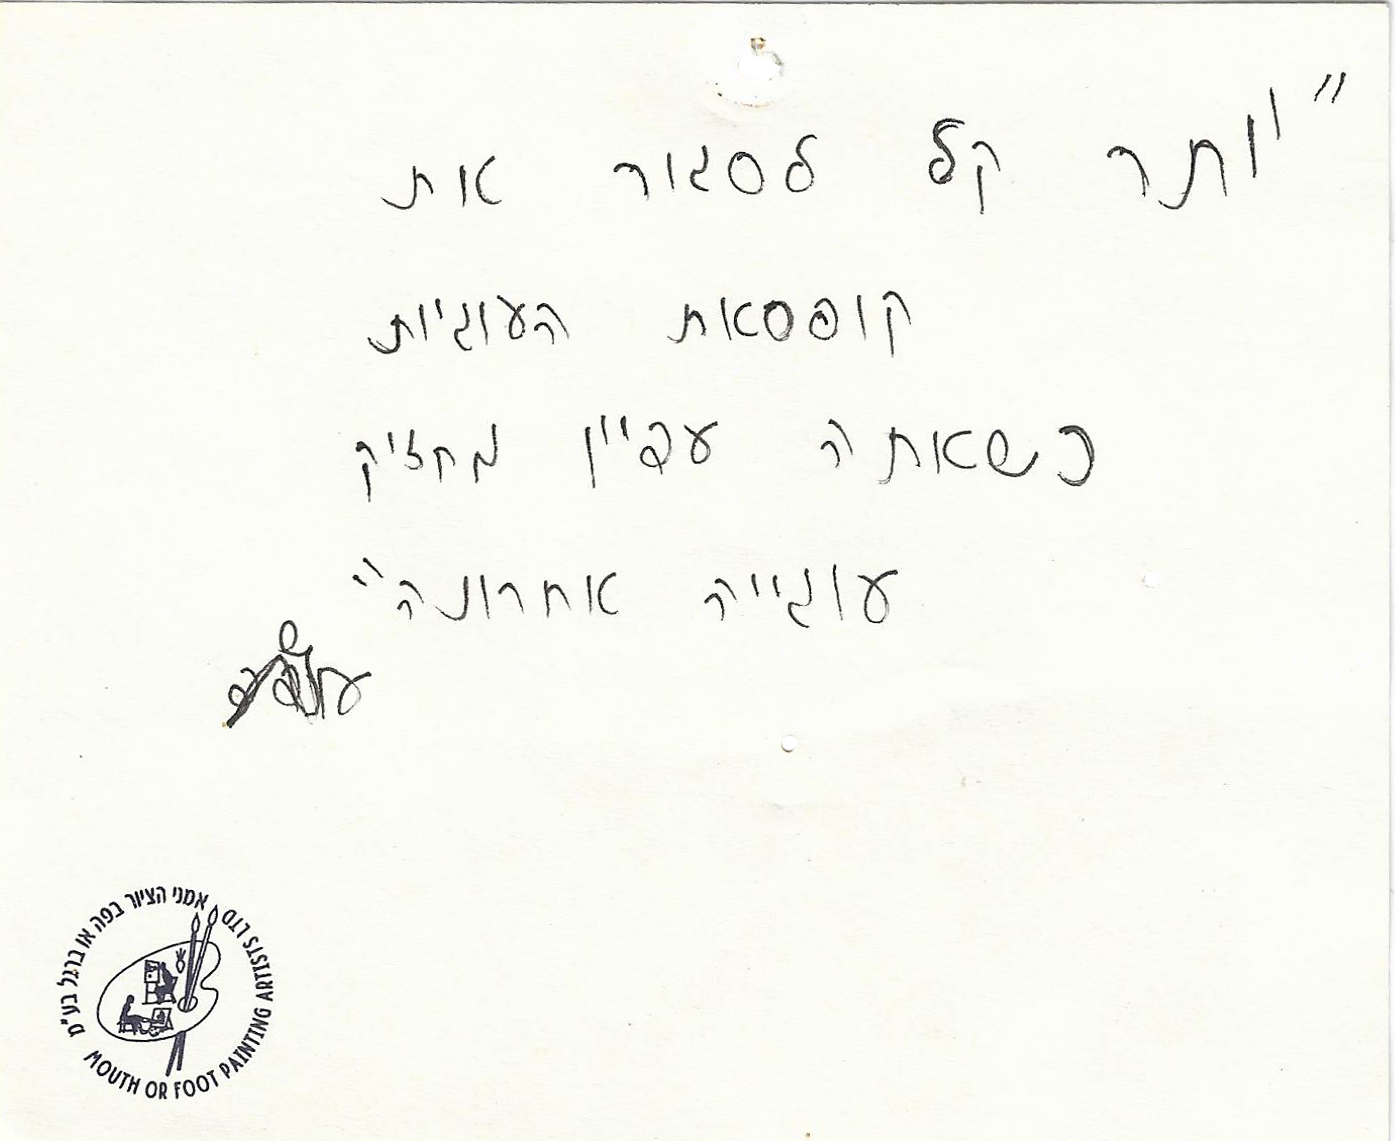 "יותר קל לסגור את
קופסאת העוגיות
כשאתה עדיין מחזיק
עוגייה אחרונה"
אמני הציור בפה או ברגל בע"מ
MOUTH OR FOOT PAINTING ARTISTS LTD